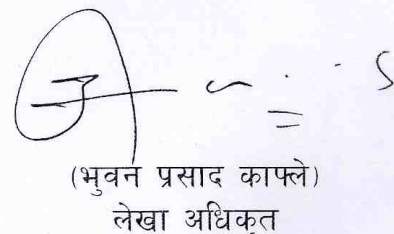 (भुवन प्रसाद काफ्ले)
लेखा अधिकृत